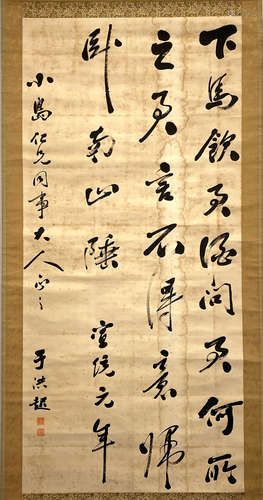 下馬飲君酒問君何所
之君言不得意歸
臥南山陲 宣統元年
小島仁兄同事大人正之
于洪